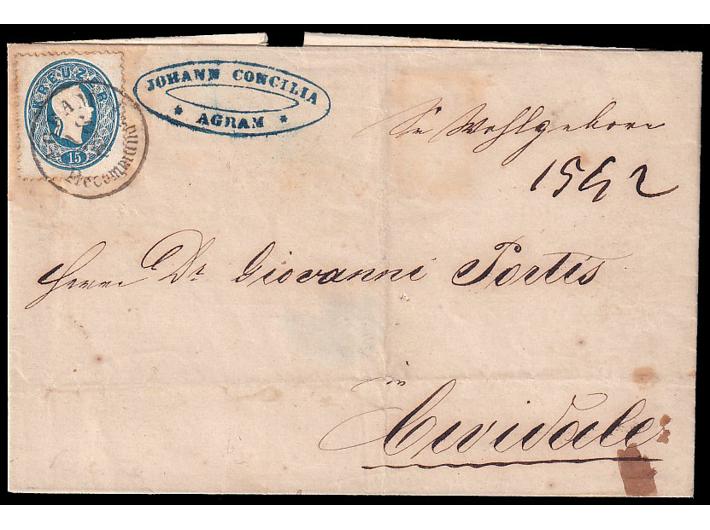 KREUZER
15
Recommandirt
JOHANN CONCILIA
* AGRAM *
Sr Wohlgeborn
Herrn Dr Giovanni Portis
in
Cividale